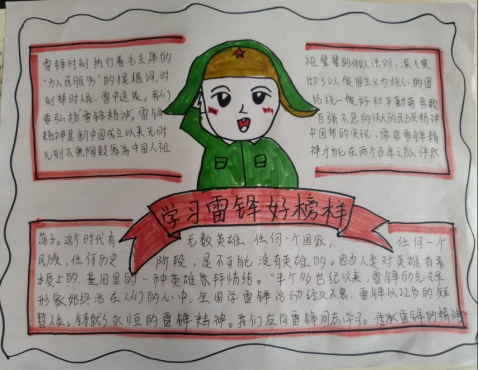 雷锋时刻执行着毛主席的
"为人民服务"的提携词,时
刻帮助人民,雪中送炭。我们
要弘扬"雷锋精神"。雷锋
精神是新中国成立以来无时
无刻不熏陶鼓舞着中国人祖
祖辈辈的做人法则,深入贯
彻了以爱国主义为核心的团
结统一,爱好和平勤劳勇敢
自强不息的伟大的民族精神
中国梦的实现,需要雷锋精
神才能在两个百年之际
学习雷锋好榜样
荡子。这个时代有 无数英雄、任何一个国家, 任何一个
民族,任何历史 阶段,是不可能没有英雄的。因为人类对英雄有着
本质上的、甚固里的一种英雄崇拜情结。"半个多世纪以来,雷锋的光荣
形象始终活在人们的心中,全国学雷锋活动经久不衰,雷锋以22岁的短
暂人生。铸就了永恒的雷锋精神。我们应向雷锋同志学习。传承雷锋的精神